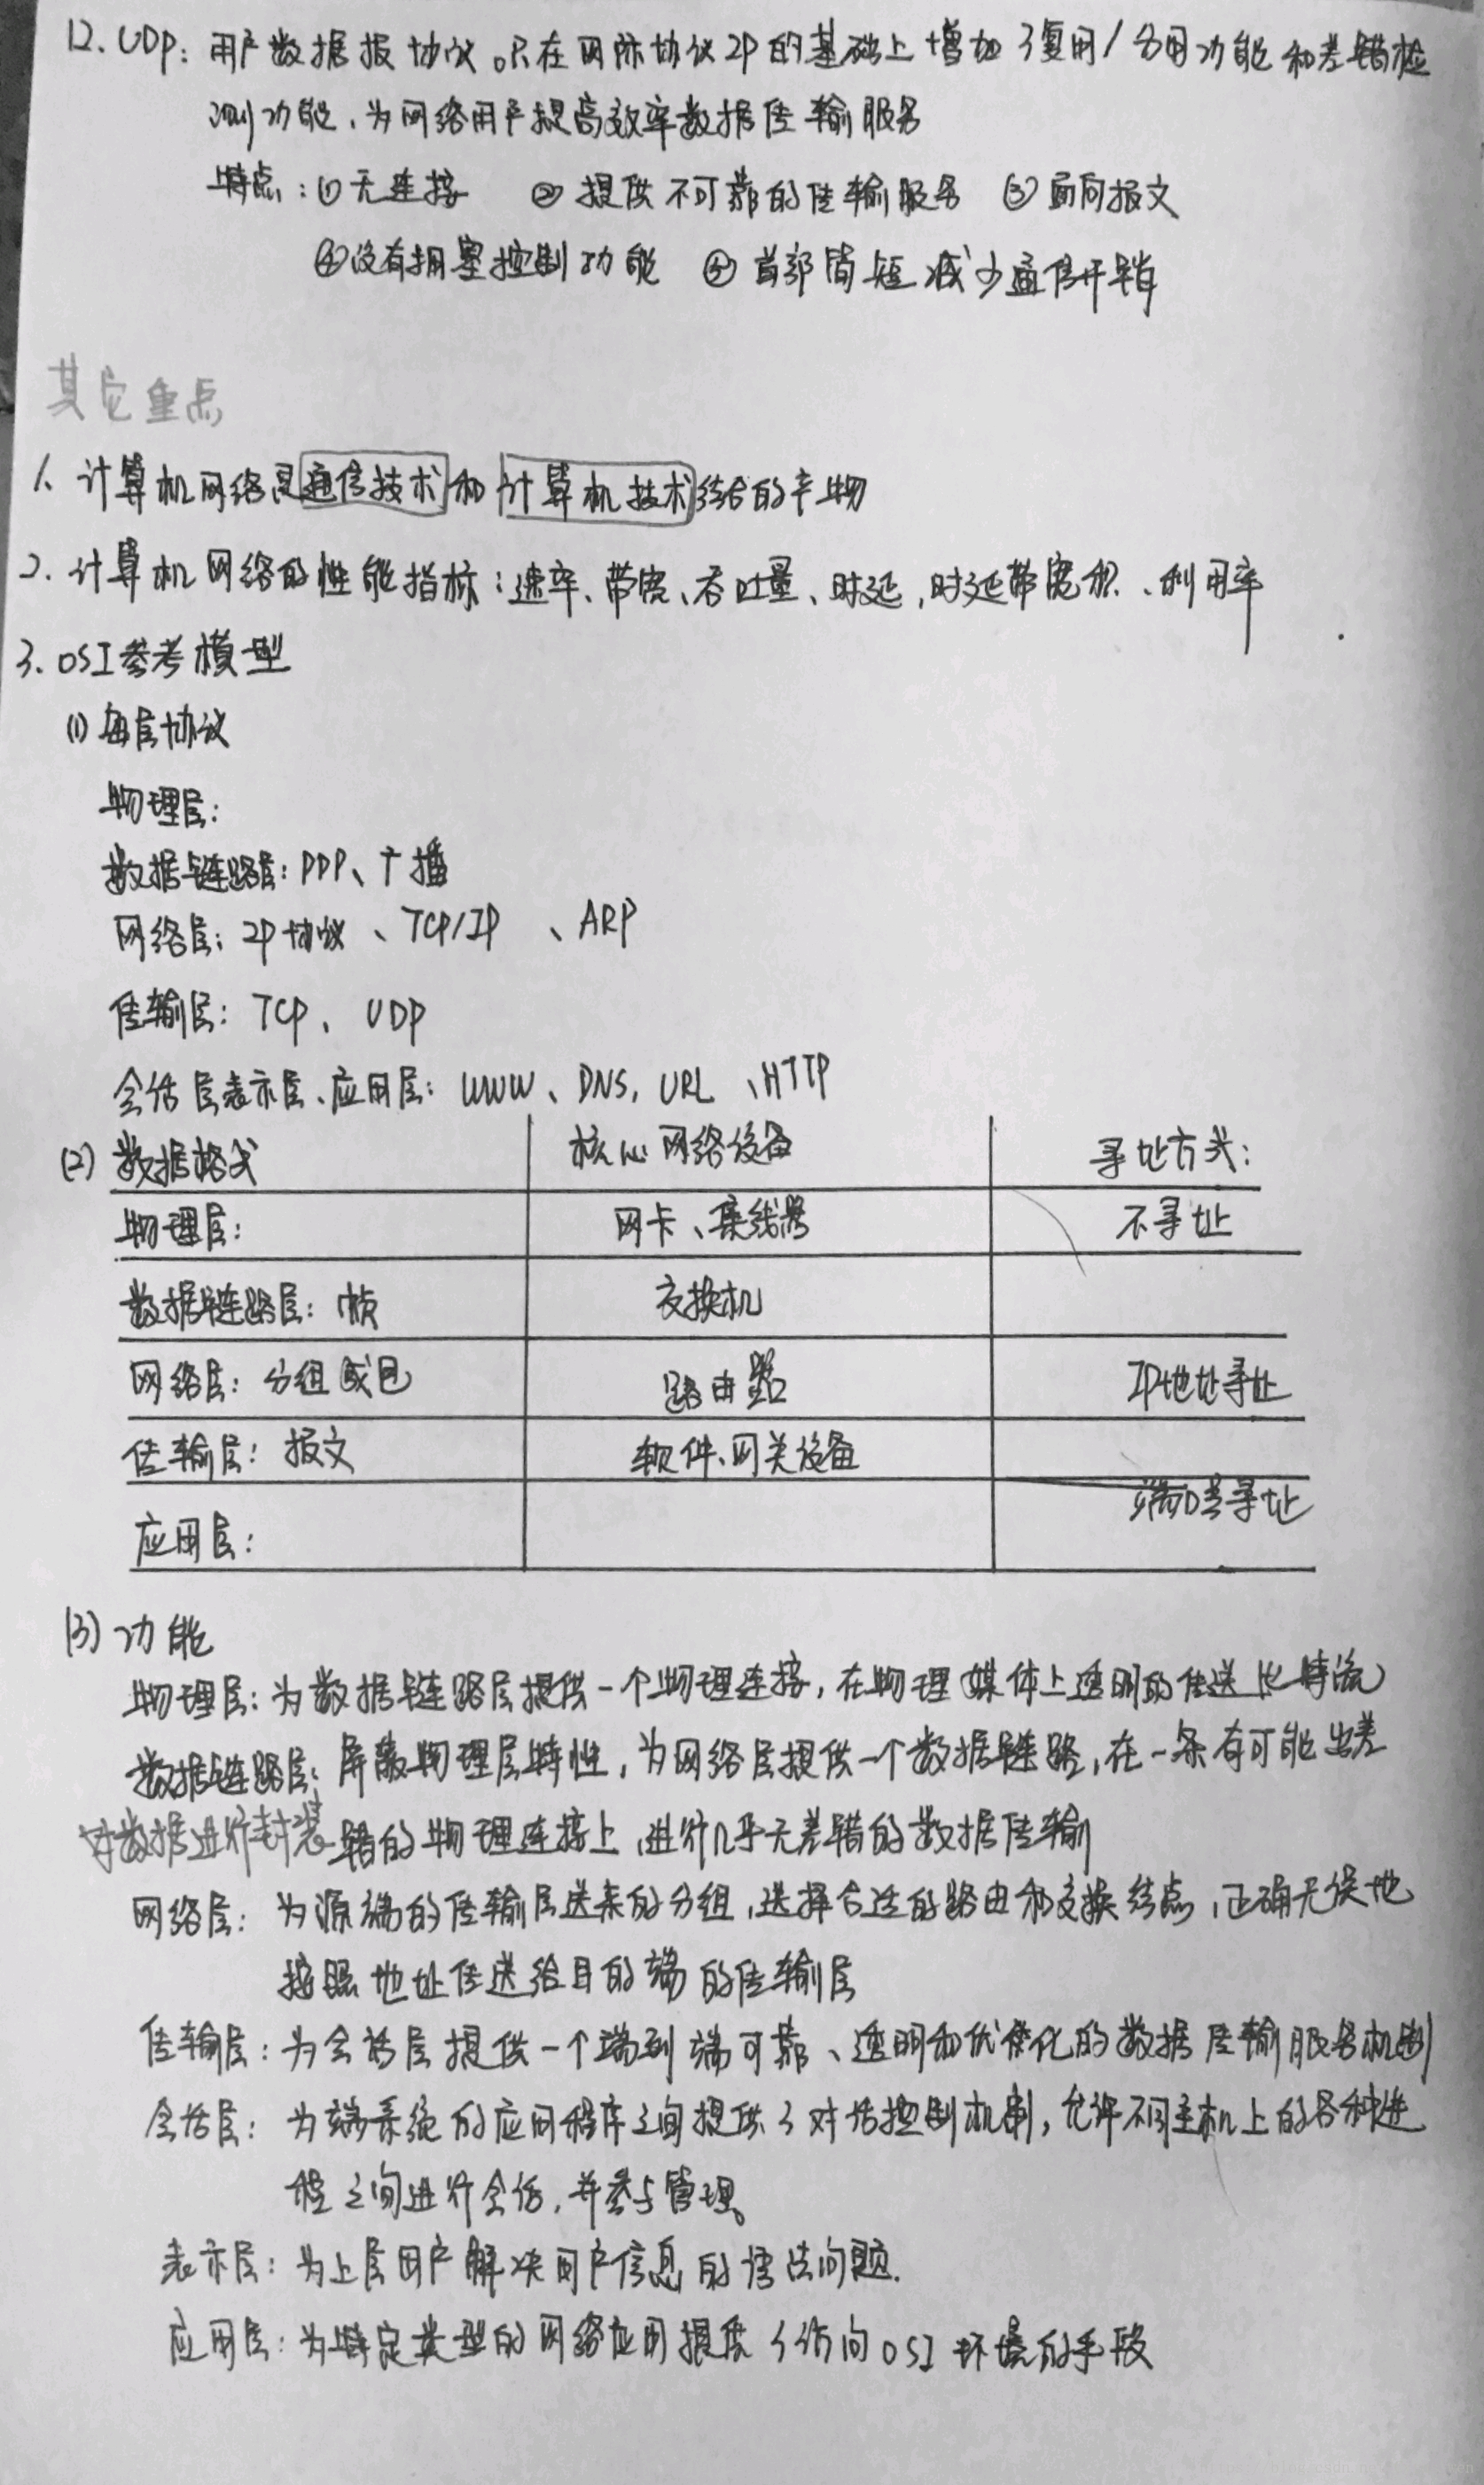 12. UDP：用户数据报协议。只在网际协议IP的基础上增加了复用/分用功能和差错检
测功能、为网络用户提高效率数据传输服务
特点：① 无连接 ② 提供不可靠的传输服务 ③ 面向报文
④ 没有拥塞控制功能 ⑤ 首部简短减少通信开销
其它重点
1、计算机网络是通信技术和计算机技术结合的产物
2. 计算机网络的性能指标：速率、带宽、吞吐量、时延，时延带宽积、利用率
3. OSI参考模型
(1) 每层协议
物理层：
数据链路层：PPP、广播
网络层：IP协议、TCP/IP 、ARP
传输层：TCP、UDP
会话层表示层、应用层：WWW、DNS, URL 、HTTP
(2) 数据格式 核心网络设备 寻址方式：
物理层： 网卡、集线器 不寻址
数据链路层：帧 交换机
网络层：分组或包 路由器 IP地址寻址
传输层：报文 软件、网关设备
端口号寻址
应用层：
(3) 功能
物理层：为数据链路层提供一个物理连接，在物理媒体上透明的传送比特流
数据链路层：屏蔽物理层特性，为网络层提供一个数据链路，在一条有可能出差
对数据进行封装 错的物理连接上，进行几乎无差错的数据传输
网络层：为源端的传输层送来的分组，选择合适的路由和交换结点，正确无误地
按照地址传送给目的端的传输层
传输层：为会话层提供一个端到端可靠、透明和优化的数据传输服务机制
会话层：为端系统的应用程序之间提供了对话控制机制，允许不同主机上的各种进
程之间进行会话，并参与管理。
表示层：为上层用户解决用户信息的语法问题.
应用层：为特定类型的网络应用提供了访问OSI环境的手段